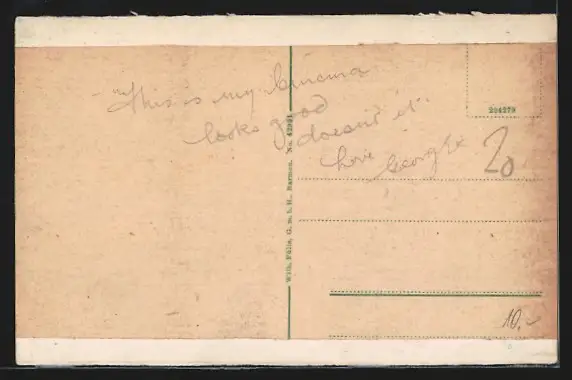 "This is my Cinema
looks good
doesn't it".
Love George x
20
Wilh. Fülle, G. m. b. H., Barmen. No. 42991
204279
10,-